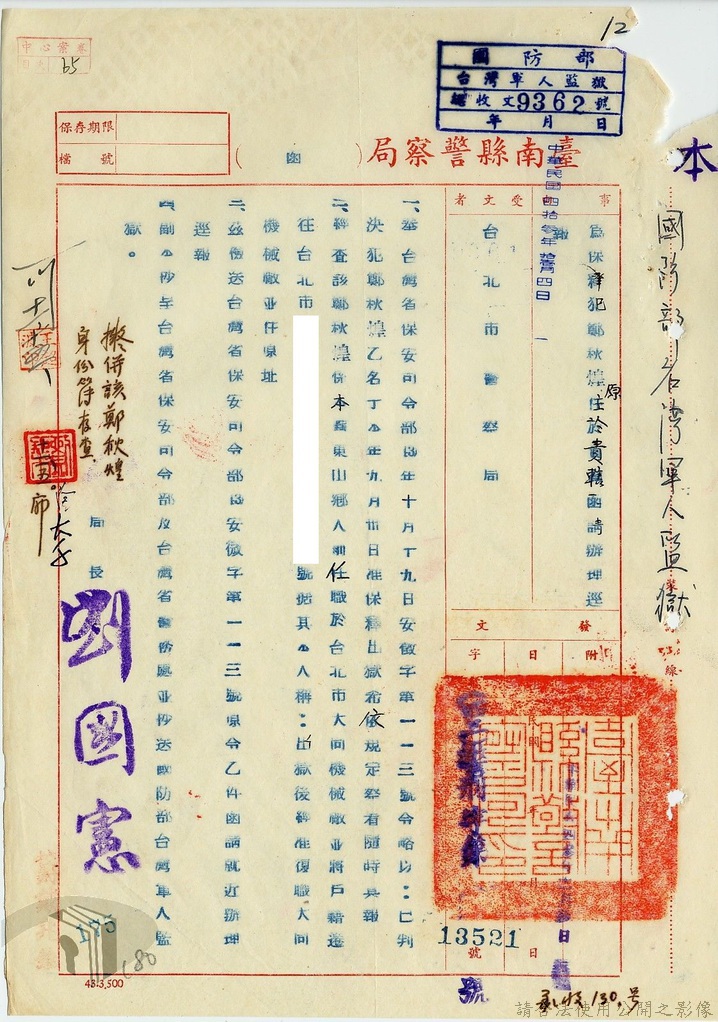 12
中心案卷
65
國防部
台灣軍人監獄
總收文9362號
年 月 日
保存期限
檔號
臺南縣警察局（函）
中華民國四拾參年
本
國防部台灣軍人監獄
事由
受文者
台北市警察局
為保釋犯鄭秋煌原住於貴轄函請辦理逕報
發文
附
日
字
號
13521
一、奉台灣省保安司令部43年十月十九日安儆字第一一三號令略以：已判
決犯鄭秋煌乙名丁43年九月卅日准保釋出獄希依規定察看隨時具報
二、經查該鄭秋煌係本縣東山鄉人前任職於台北市大同機械廠並將戶籍遷
往台北市
號據其本人稱：出獄後經准復職大同
機械廠並住原址
三、茲檢送台灣省保安司令部43安儆字第一一三號原令乙件函請就近辦理
逕報
四、副本抄呈台灣省保安司令部及台灣省警務處並抄送國防部台灣軍人監
獄。
擬併該鄭秋煌
身份簿存查
局長
劉國憲
175
180
43.3,500
130號
請合法使用公開之影像